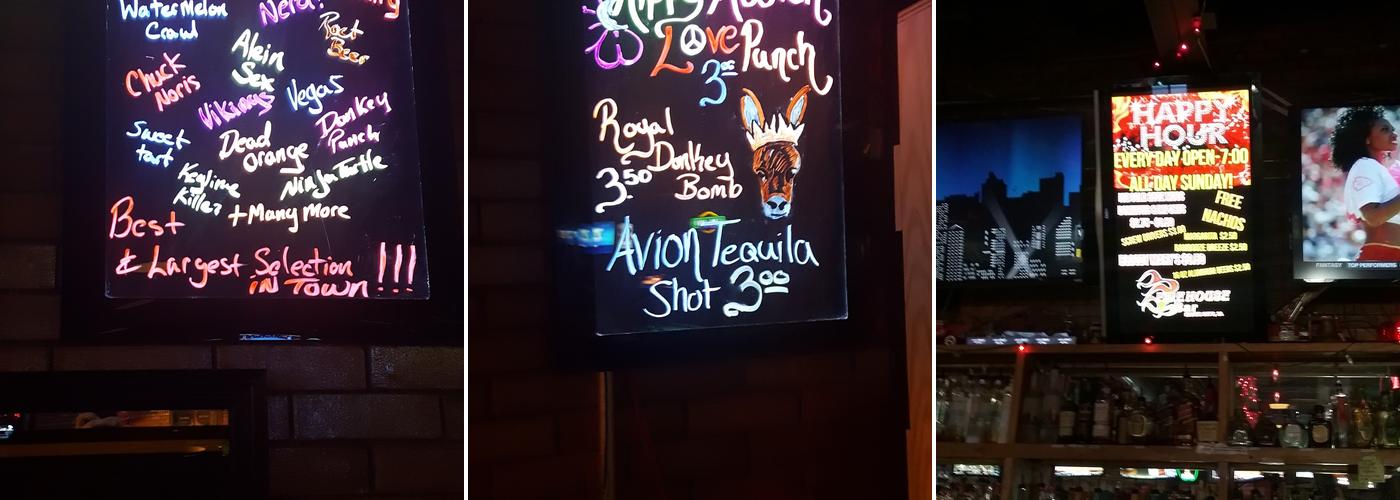 WaterMelon
Crawl
Nerd!
Root
Beer
Alein
Sex
Chuck
Noris
Vikings
Vegas
Donkey
Punch
Sweet
tart
Dead
orange
Keylime
Killer
Ninja Turtle
+ Many More
Best
& Largest Selection
IN Town !!!
Love Punch
3⁰⁰
Royal
Donkey
3⁵⁰
Bomb
Avion Tequila
Shot 3⁰⁰
HAPPY
HOUR
EVERY DAY OPEN-7:00
ALL DAY SUNDAY!
FREE
NACHOS
FANTASY TOP PERFORMERS